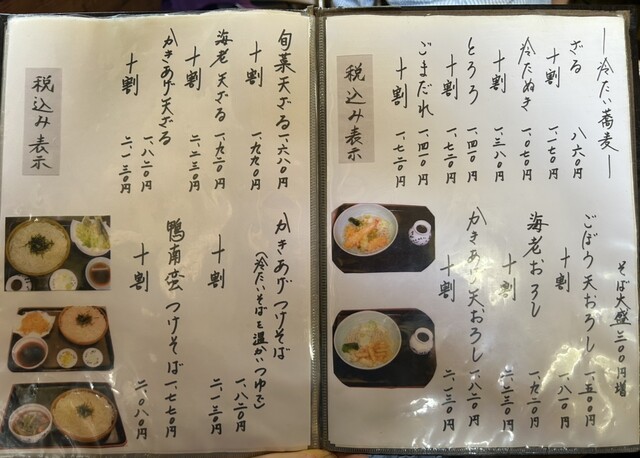 ―冷たい蕎麦―
ざる 八六〇円
十割 一、一七〇円
冷たぬき 一、〇七〇円
十割 一、三八〇円
とろろ 一、四一〇円
十割 一、七二〇円
ごまだれ 一、四一〇円
十割 一、七二〇円
税込み表示
そば大盛 三〇〇円増
ごぼう天おろし 一、五〇〇円
十割 一、八一〇円
海老おろし 一、九二〇円
十割 二、二三〇円
かきあげ天おろし 一、八二〇円
十割 二、一三〇円
旬菜天ざる 一、六八〇円
十割 一、九九〇円
海老天ざる 一、九二〇円
十割 二、二三〇円
かきあげ天ざる 一、八二〇円
十割 二、一三〇円
税込み表示
かきあげつけそば 一、八二〇円
(冷たいそばを温かいつゆで)
十割 二、一三〇円
鴨南蛮つけそば 一、七七〇円
十割 二、〇八〇円